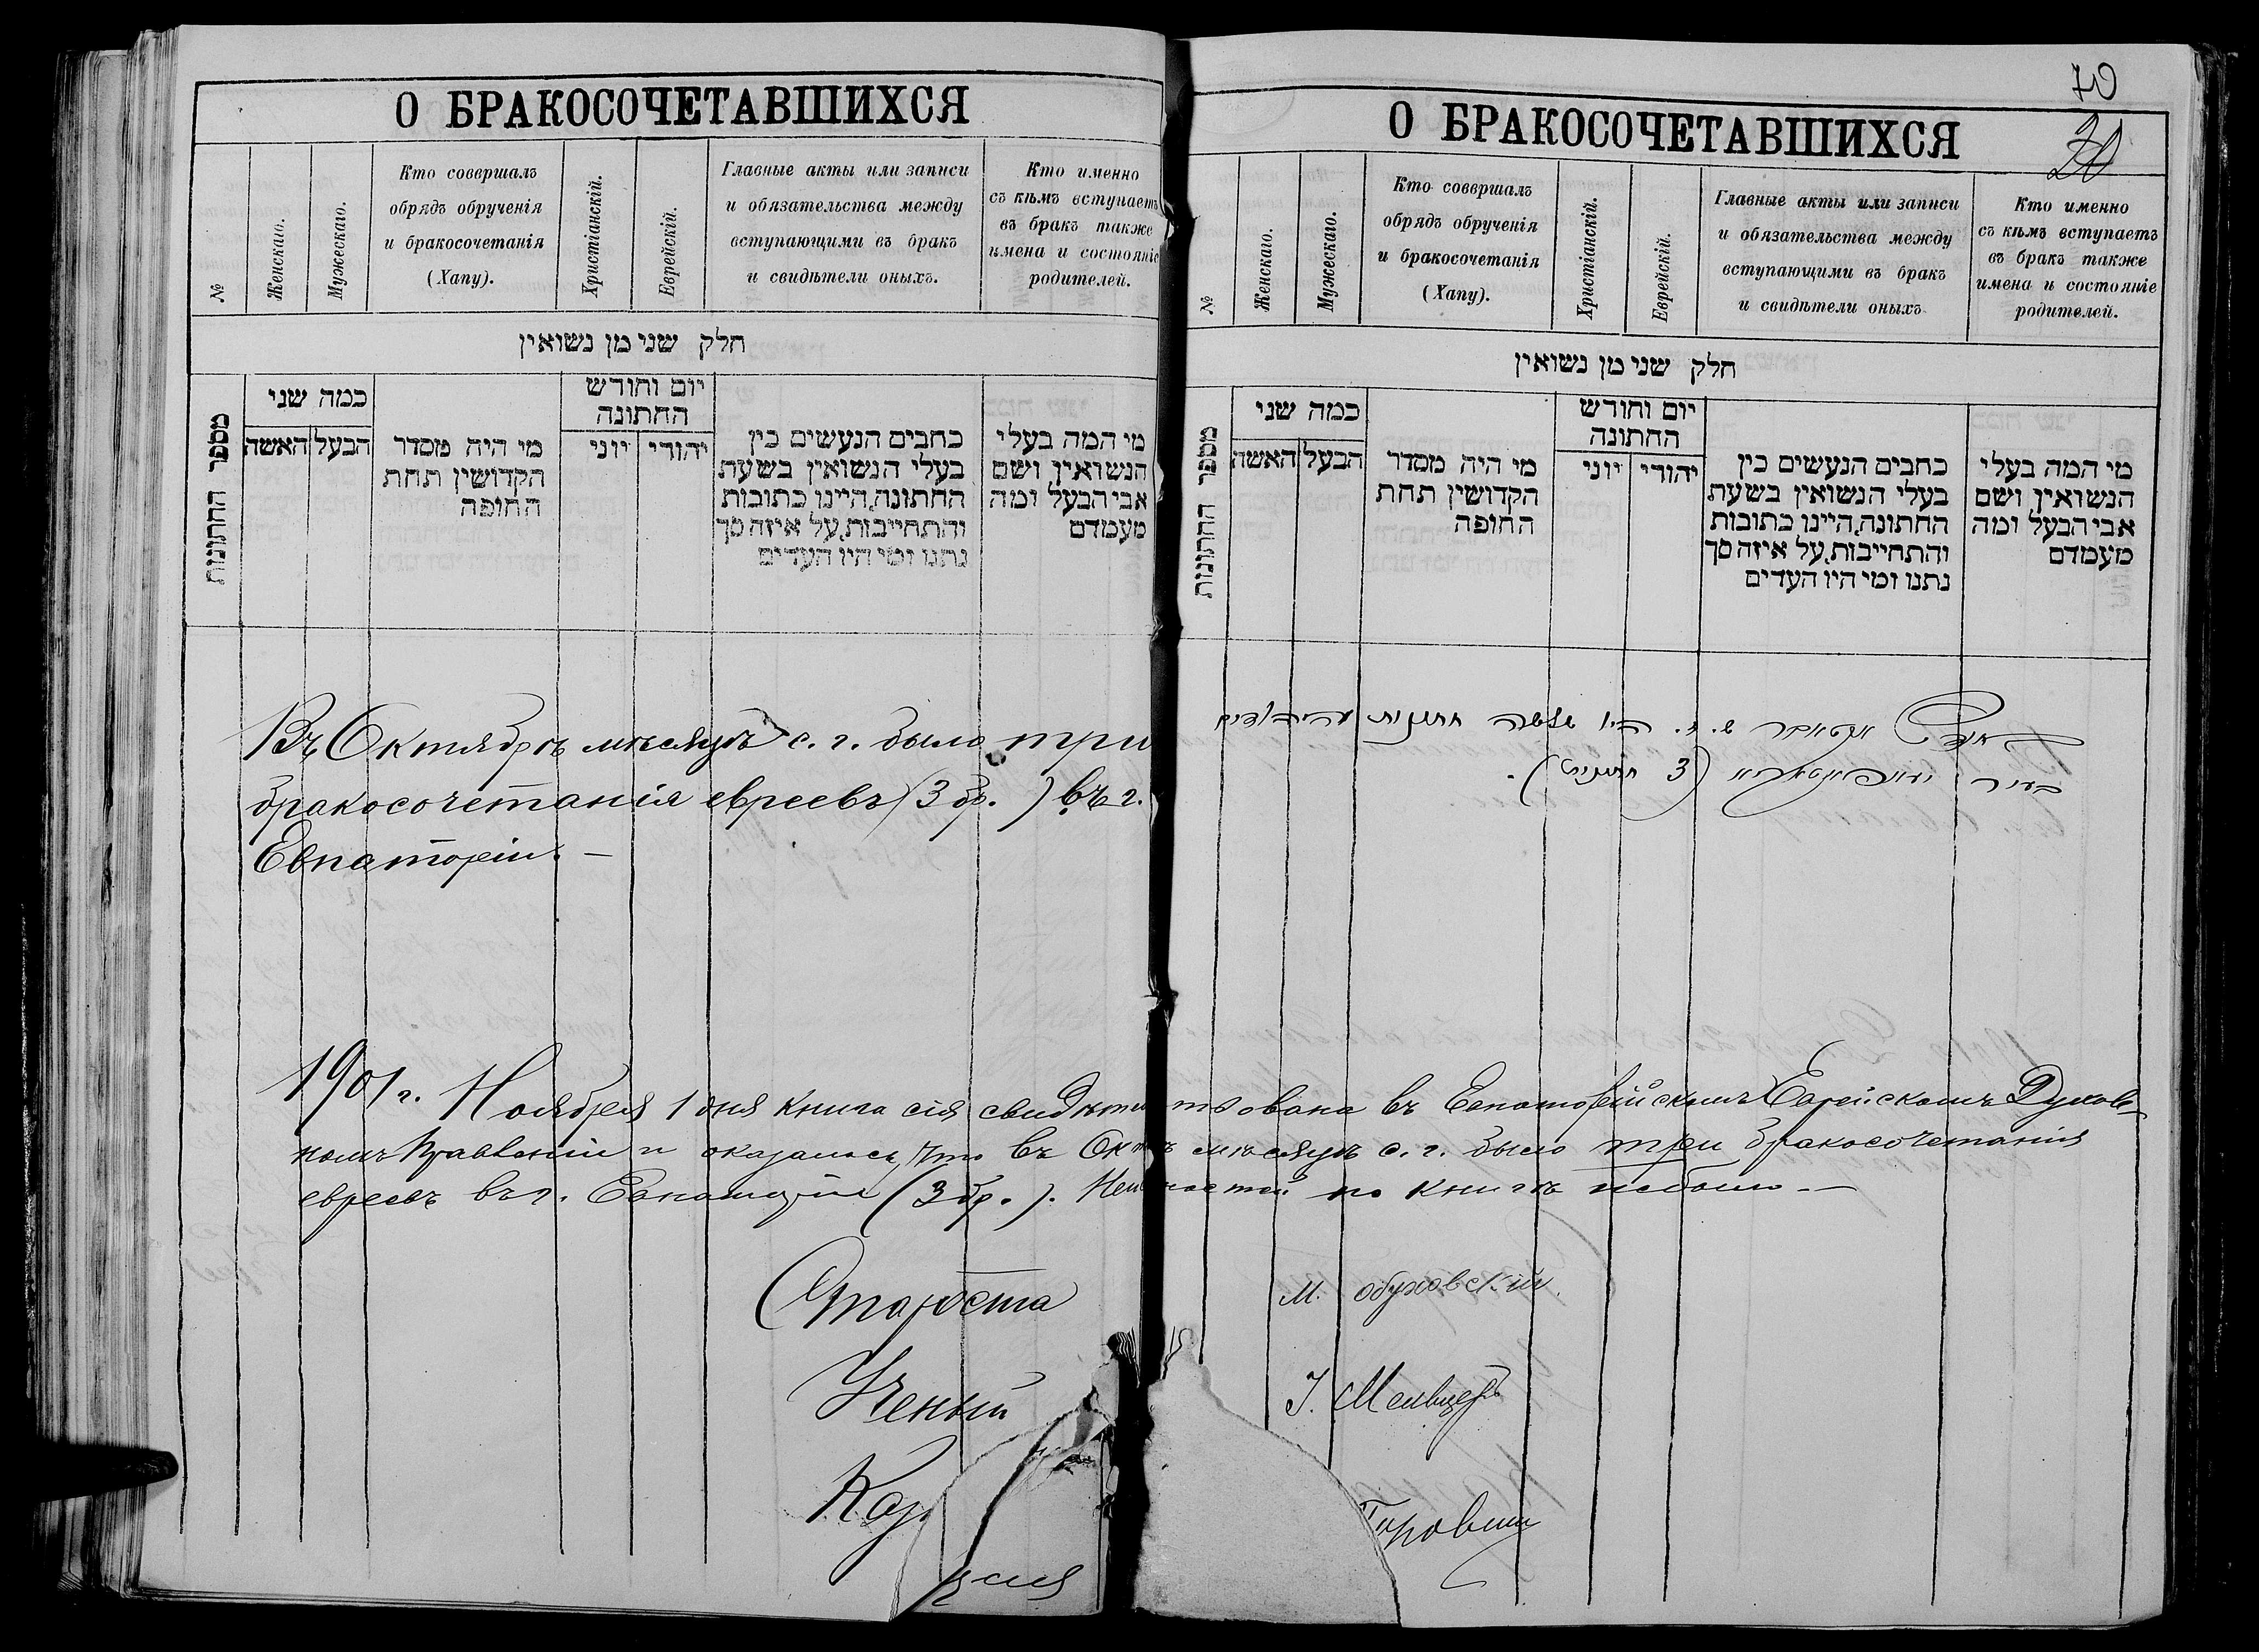 О БРАКОСОЧЕТАВШИХСЯ
№
Женскаго.
Мужескаго.
Кто совершалъ
обрядъ обрученія
и бракосочетанія
(Хапу).
Христіанскій.
Еврейскій.
Главные акты или записи
и обязательства между
вступающими въ бракъ
и свидѣтели оныхъ.
Кто именно
съ кѣмъ вступаетъ
въ бракъ также
имена и состояніе
родителей.
חלק שני מן נשואין
מספר החתונות
כמה שני
האשה
הבעל
מי היה מסדר
הקדושין תחת
החופה
יום וחודש
החתונה
יוני
יהודי
כתבים הנעשים בין
בעלי הנשואין בשעת
החתונה, היינו כתובות
והתחייבות, על איזה סך
נתנו ומי היו העדים
מי המה בעלי
הנשואין ושם
אבי הבעל ומה
מעמדם
Въ Октябрѣ мѣсяцѣ с. г. было три
бракосочетанія евреевъ (3 бр.) въ г.
Евпаторіи. —
70
20
О БРАКОСОЧЕТАВШИХСЯ
№
Женскаго.
Мужескаго.
Кто совершалъ
обрядъ обрученія
и бракосочетанія
(Хапу).
Христіанскій.
Еврейскій.
Главные акты или записи
и обязательства между
вступающими въ бракъ
и свидѣтели оныхъ
Кто именно
съ кѣмъ вступаетъ
въ бракъ также
имена и состояніе
родителей.
חלק שני מן נשואין
מספר החתונות
כמה שני
האשה
הבעל
מי היה מסדר
הקדושין תחת
החופה
יום וחודש
החתונה
יוני
יהודי
כתבים הנעשים בין
בעלי הנשואין בשעת
החתונה, היינו כתובות
והתחייבות, על איזה סך
נתנו ומי היו העדים
מי המה בעלי
הנשואין ושם
אבי הבעל ומה
מעמדם
היו שלשה חתונות
בעיר (3 חתונות).
1901 г. Ноября 1 дня книга сія свидѣтельствована въ Евпаторійскомъ Еврейскомъ Духов-
номъ Правленіи и оказалось, что въ Октябрѣ мѣсяцѣ с. г. было три бракосочетанія
евреевъ въ г. Евпаторіи (3 бр.). по книгѣ небыло —
Староста М. Обуховскій.
Ученый I. Мельцеръ